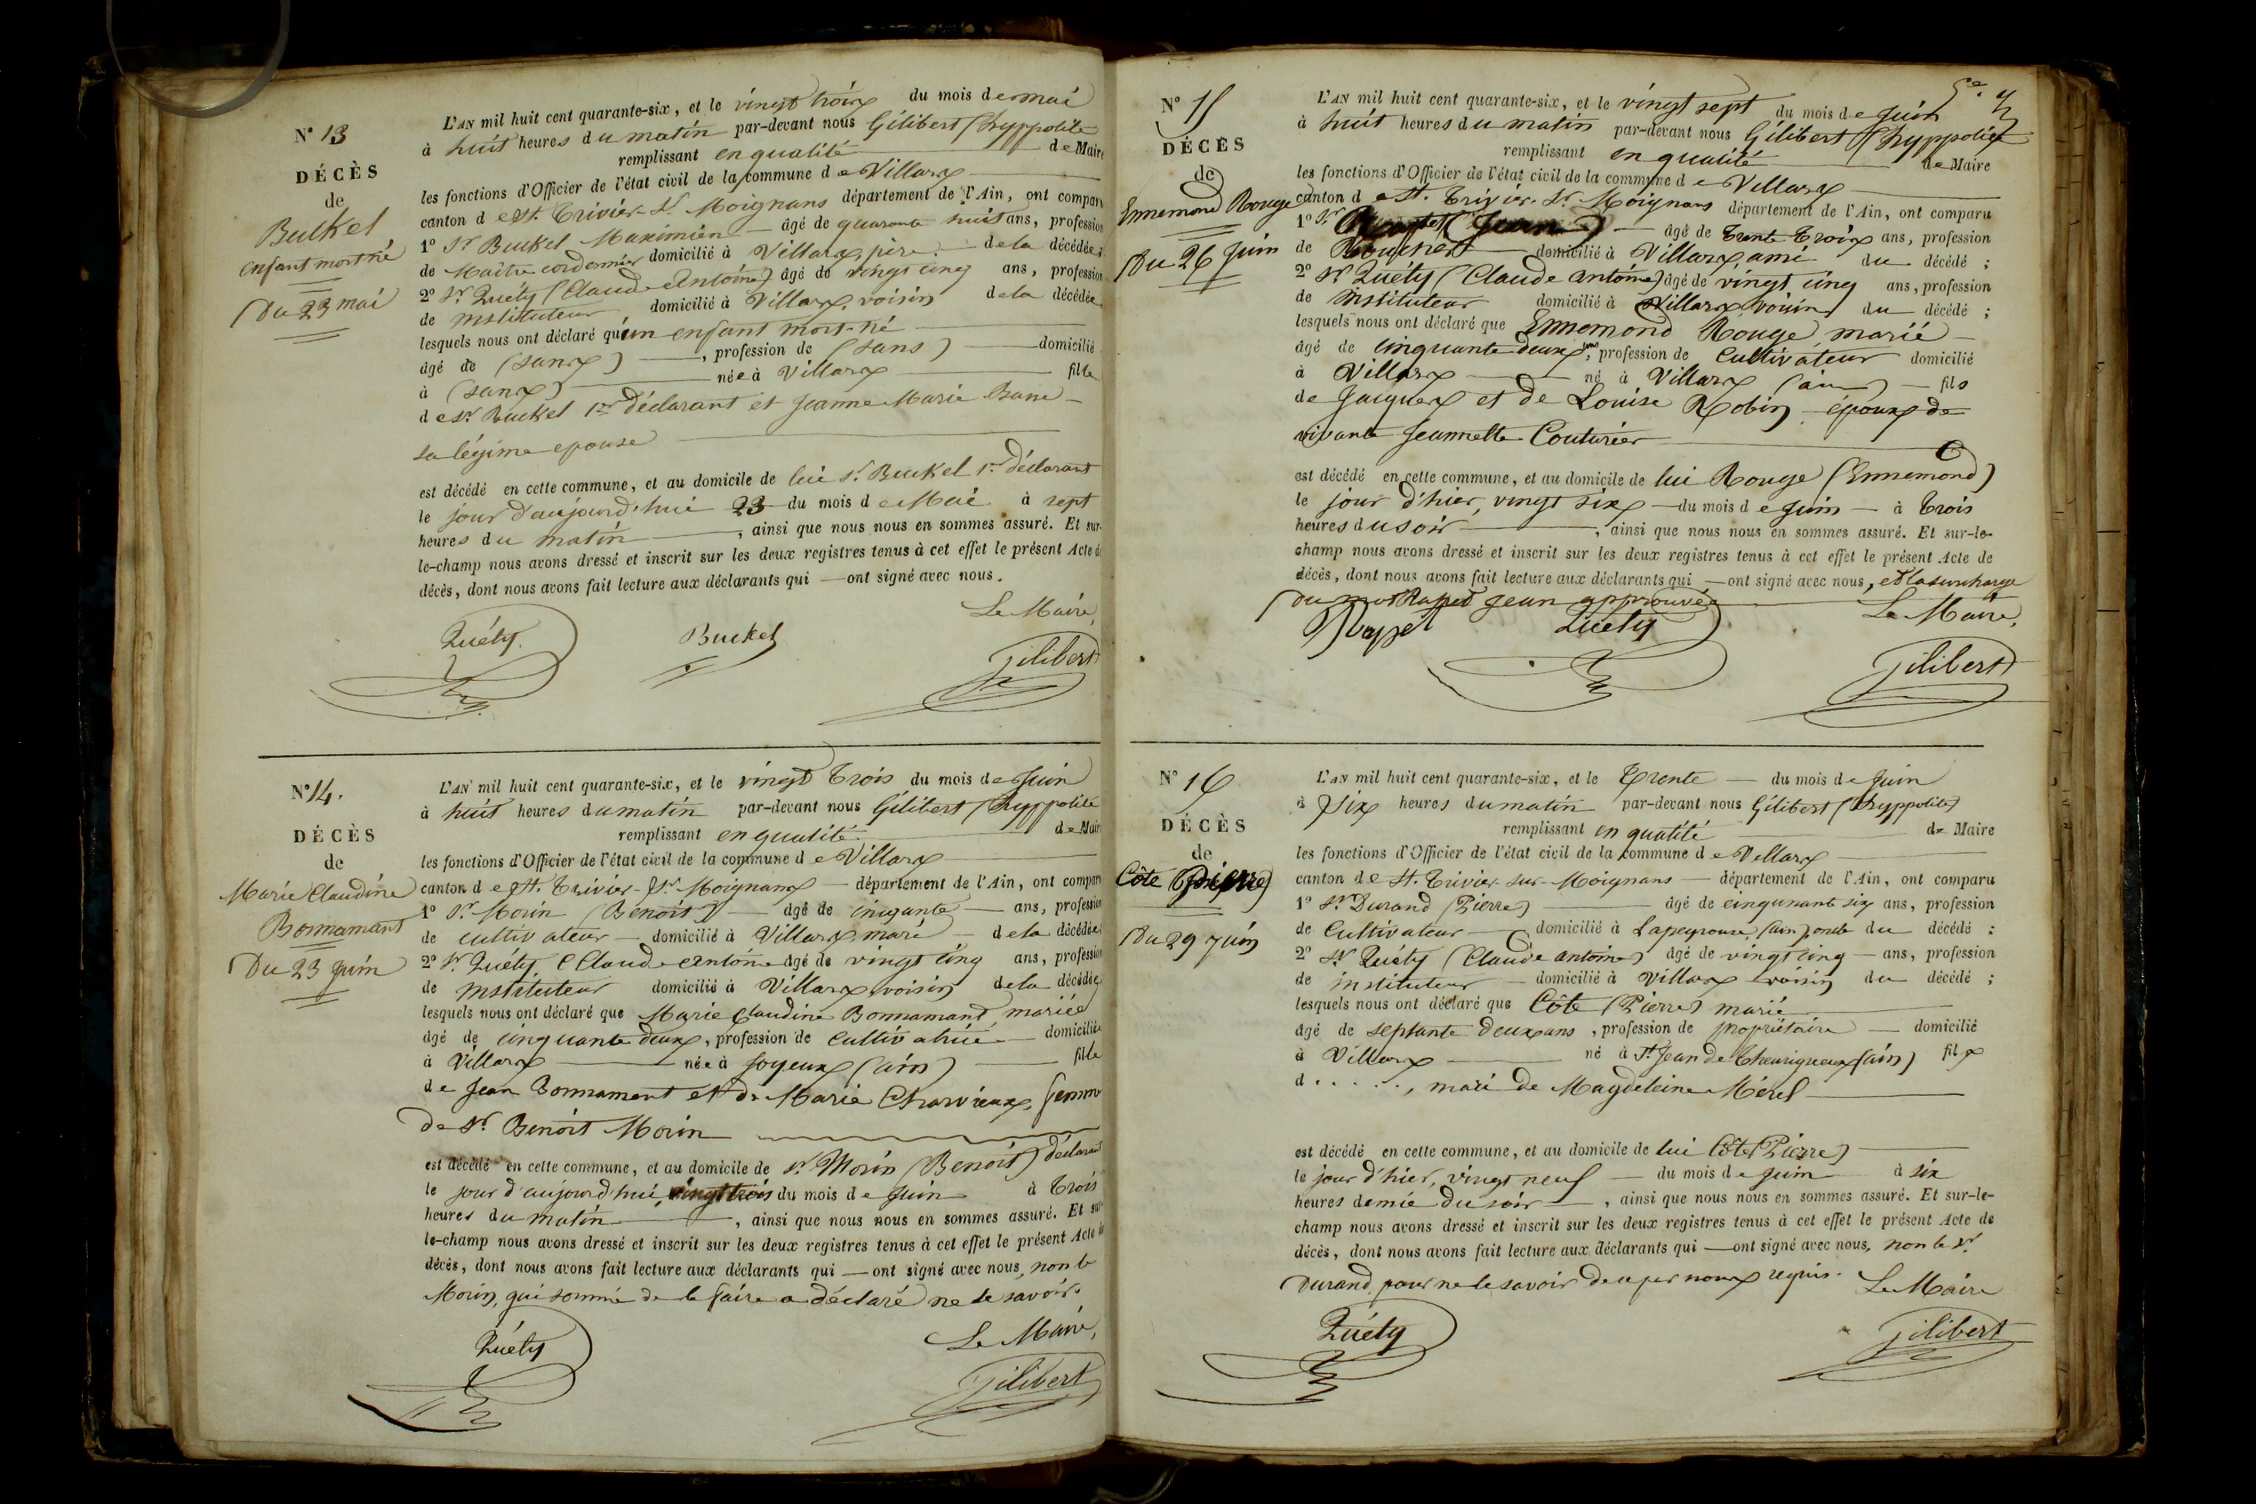 N° 13
DÉCÈS
de
Buckel
enfant mort né
Du 23 mai
L'AN mil huit cent quarante-six, et le vingt trois du mois de mai
à huit heures du matin par-devant nous Gilibert (hyppolite
remplissant en qualité de Maire
les fonctions d'Officier de l'état civil de la commune de Villars
canton de St. Trivier-Sr. Moignans département de l'Ain, ont comparu
1° Sr Buckel Maximien âgé de quarante huit ans, profession
de Maître cordonnier domicilié à Villars, père de la décédée;
2° Sr Quéty (Claude Antoine) âgé de vingt cinq ans, profession
de instituteur domicilié à Villars, voisin de la décédée
lesquels nous ont déclaré qu'un enfant mort-né
âgé de (sans), profession de (sans) domicilié
à (sans) née à Villars fille
de Sr. Buckel 1er déclarant et Jeanne Marie
sa légime epouse
est décédé en cette commune, et au domicile de lui Sr. Buckel 1er déclarant
le jour d'aujourd'hui 23 du mois de Mai à sept
heures du matin, ainsi que nous nous en sommes assuré. Et sur-
le-champ nous avons dressé et inscrit sur les deux registres tenus à cet effet le présent Acte de
décès, dont nous avons fait lecture aux déclarants qui ont signé avec nous.
Le Maire,
Quéty Buckel Gilibert
N° 14.
DÉCÈS
de
Marie Claudine
Bonnamant
Du 23 Juin
L'AN mil huit cent quarante-six, et le vingt Trois du mois de Juin
à huit heures du matin par-devant nous Gilibert (hyppolite
remplissant en qualité de Maire
les fonctions d'Officier de l'état civil de la commune de Villars
canton de St. Trivier-Sr. Moignans département de l'Ain, ont comparu
1° Sr. Morin (Benoit) âgé de cinquante ans, profession
de cultivateur domicilié à Villars, mari de la décédée
2° Sr. Quéty (Claude Antoine âgé de vingt cinq ans, profession
de instituteur domicilié à Villars, voisin de la décédée
lesquels nous ont déclaré que Marie Claudine Bonnamant mariée
âgé de cinquante deux, profession de Cultivatrice domiciliée
à Villars née à Joyeux (ain) fille
de Jean Bonnamant et de Marie Charvieux, femme
de Sr. Benoit Morin
est décédé en cette commune, et au domicile de Sr. Morin (Benoit) déclarant
le jour d'aujourd'hui, vingt trois du mois de Juin à Trois
heures du matin, ainsi que nous nous en sommes assuré. Et sur-
le-champ nous avons dressé et inscrit sur les deux registres tenus à cet effet le présent Acte de
décès, dont nous avons fait lecture aux déclarants qui ont signé avec nous, non le
Morin, qui sommé de le faire a déclaré ne le savoir.
Le Maire,
Quéty Gilibert
N° 15
DÉCÈS
de
Ennemond Rouge
Du 26 Juin
L'AN mil huit cent quarante-six, et le vingt sept du mois de Juin
à huit heures du matin par-devant nous Gilibert (hyppolite
remplissant en qualité de Maire
les fonctions d'Officier de l'état civil de la commune de Villars
canton de St. Trivier-Sr. Moignans département de l'Ain, ont comparu
1° Sr Rappet (Jean) âgé de Trente Trois ans, profession
de Boucher domicilié à Villars, ami du décédé;
2° Sr. Quéty (Claude antoine) âgé de vingt cinq ans, profession
de instituteur domicilié à Villars, voisin du décédé;
lesquels nous ont déclaré que Ennemond Rouge marié
âgé de cinquante deux ans, profession de Cultivateur domicilié
à Villars né à Villars (ain) fils
de Jacques et de Louise Robin, époux de
vivante Jeannette Couturier
est décédé en cette commune, et au domicile de lui Rouge (Ennemond)
le jour d'hier, vingt six du mois de Juin à Trois
heures du soir, ainsi que nous nous en sommes assuré. Et sur-le-
champ nous avons dressé et inscrit sur les deux registres tenus à cet effet le présent Acte de
décès, dont nous avons fait lecture aux déclarants qui ont signé avec nous, et la surcharge
du mot Rappet Jean approuvée
Le Maire,
Rappet Quéty Gilibert
N° 16
DÉCÈS
de
Côte (Pierre)
Du 29 Juin
L'AN mil huit cent quarante-six, et le Trente du mois de Juin
à six heures du matin par-devant nous Gilibert (hyppolite)
remplissant en qualité de Maire
les fonctions d'Officier de l'état civil de la commune de Villars
canton de St. Trivier-sur-Moignans département de l'Ain, ont comparu
1° Sr Durand (Pierre) âgé de cinquante six ans, profession
de Cultivateur domicilié à Lapeyrouse (ain), oncle du décédé:
2° Sr. Quéty (Claude antoine) âgé de vingt cinq ans, profession
de instituteur domicilié à Villars voisin du décédé;
lesquels nous ont déclaré que Côte (Pierre) marié
âgé de septante deux ans, profession de propriétaire domicilié
à Villars né à St. Jean de Thurigneux (ain) fils
d....., mari de Magdeleine Mérel
est décédé en cette commune, et au domicile de lui Côte (Pierre)
le jour d'hier, vingt neuf du mois de Juin à six
heures demie du soir, ainsi que nous nous en sommes assuré. Et sur-le-
champ nous avons dressé et inscrit sur les deux registres tenus à cet effet le présent Acte de
décès, dont nous avons fait lecture aux déclarants qui ont signé avec nous, non le Sr.
Durand, pour ne le savoir de ce par nous requis.
Le Maire
Quéty Gilibert